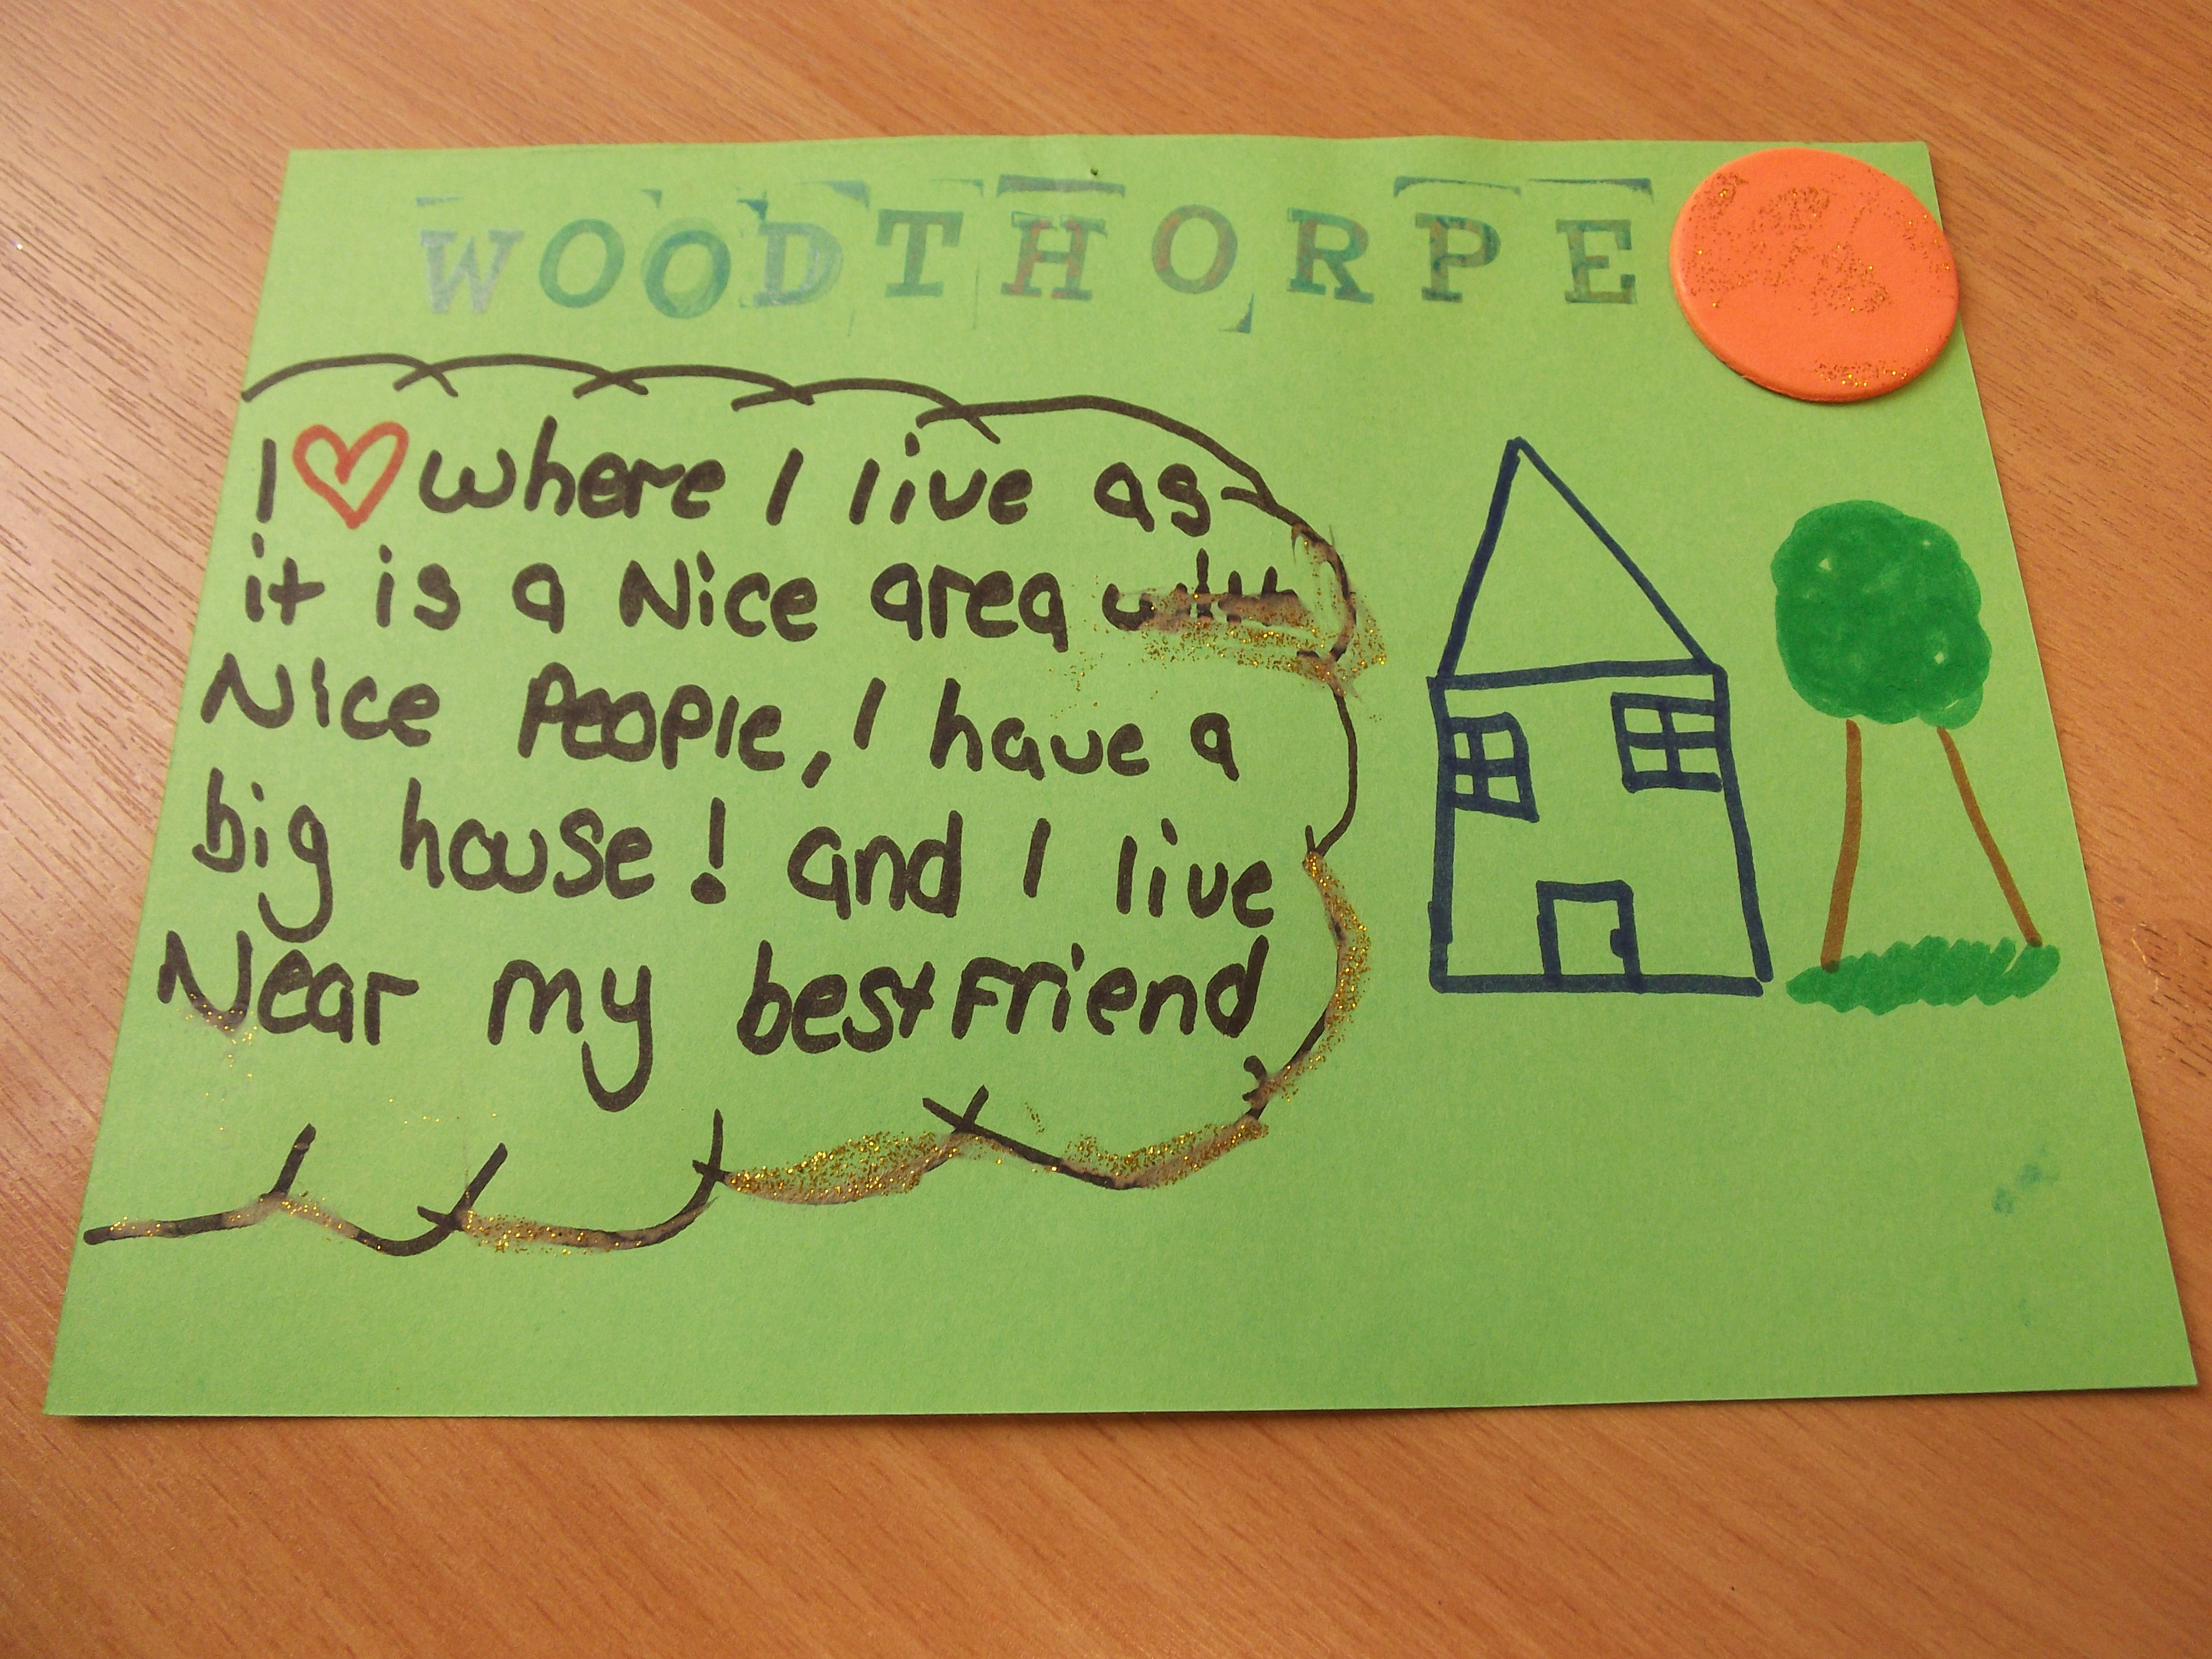 WOODTHORPE
I ♥ where I live as
it is a Nice area with
Nice People, I have a
big house! and I live
Near my bestfriend